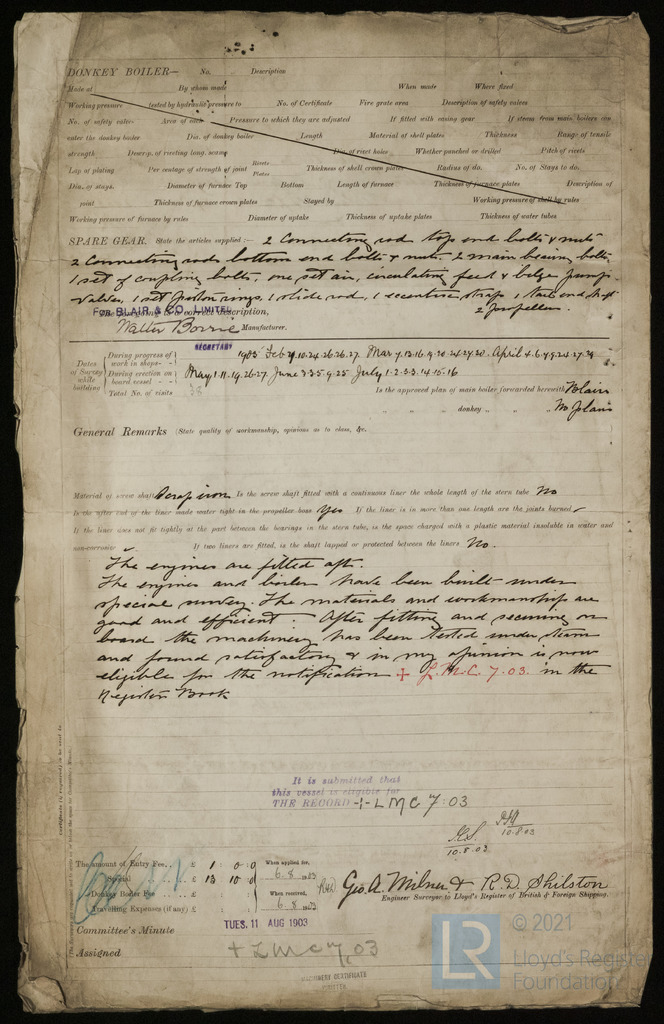 DONKEY BOILER— No. Description
Made at By whom made When made Where fixed
Working pressure tested by hydraulic pressure to No. of Certificate Fire grate area Description of safety valves
No. of safety valves Area of each Pressure to which they are adjusted If fitted with easing gear If steam from main boilers can
enter the donkey boiler Dia. of donkey boiler Length Material of shell plates Thickness Range of tensile
strength Descrip. of riveting long. seams Dia. of rivet holes Whether punched or drilled Pitch of rivets
Lap of plating Per centage of strength of joint Rivets Plates Thickness of shell crown plates Radius of do. No. of Stays to do.
Dia. of stays. Diameter of furnace Top Bottom Length of furnace Thickness of furnace plates Description of
joint Thickness of furnace crown plates Stayed by Working pressure of shell by rules
Working pressure of furnace by rules Diameter of uptake Thickness of uptake plates Thickness of water tubes
SPARE GEAR. State the articles supplied:— 2 Connecting rod top end bolts & nuts
2 Connecting rods bottom end bolts & nuts, 2 main bearing bolts
1 set of coupling bolts, one set air, circulating feed & bilge pump
valves, 1 set piston rings, 1 slide rod, 1 eccentric strap 1 tail end shaft
2 propellers.
The foregoing is a correct description,
FOR BLAIR & CO. LIMITED
Walter Borrie Manufacturer.
SECRETARY
Dates of Survey while building
During progress of work in shops - - 1903 Feb
During erection on board vessel - - May 1. 11. 19. 26. 27. June 3. 3. 5. 9. 25 July 1. 2. 3. 3. 14. 15. 16
Total No. of visits 38
Is the approved plan of main boiler forwarded herewith Blair
" " " donkey " " " No plan
General Remarks (State quality of workmanship, opinions as to class, &c.
Material of screw shaft Scrap iron Is the screw shaft fitted with a continuous liner the whole length of the stern tube No
Is the after end of the liner made water tight in the propeller boss Yes If the liner is in more than one length are the joints burned
If the liner does not fit tightly at the part between the bearings in the stern tube, is the space charged with a plastic material insoluble in water and
non-corrosive If two liners are fitted, is the shaft lapped or protected between the liners No.
The engines are fitted aft.
The engines and boiler have been built under
special survey. The materials and workmanship are
good and efficient. After fitting and securing on
board the machinery has been tested under steam
and found satisfactory & in my opinion is now
eligible for the notification + L.M.C. 7.03. in the
Register Book
It is submitted that
this vessel is eligible for
THE RECORD + LMC 7.03
10.8.03
10.8.03
The amount of Entry Fee.. £ 1 : 0 : 0 When applied for,
Special £ 13 : 10 : 0 6.8.1903
Donkey Boiler Fee £ When received,
Travelling Expenses (if any) £ 6.8.1903
Geo. A. Milner & R. D. Shilston
Engineer Surveyor to Lloyd's Register of British & Foreign Shipping.
Committee's Minute TUES. 11 AUG 1903
Assigned + LMC 7.03
MACHINERY CERTIFICATE
WRITTEN
LR
© 2021
Lloyd's Register
Foundation